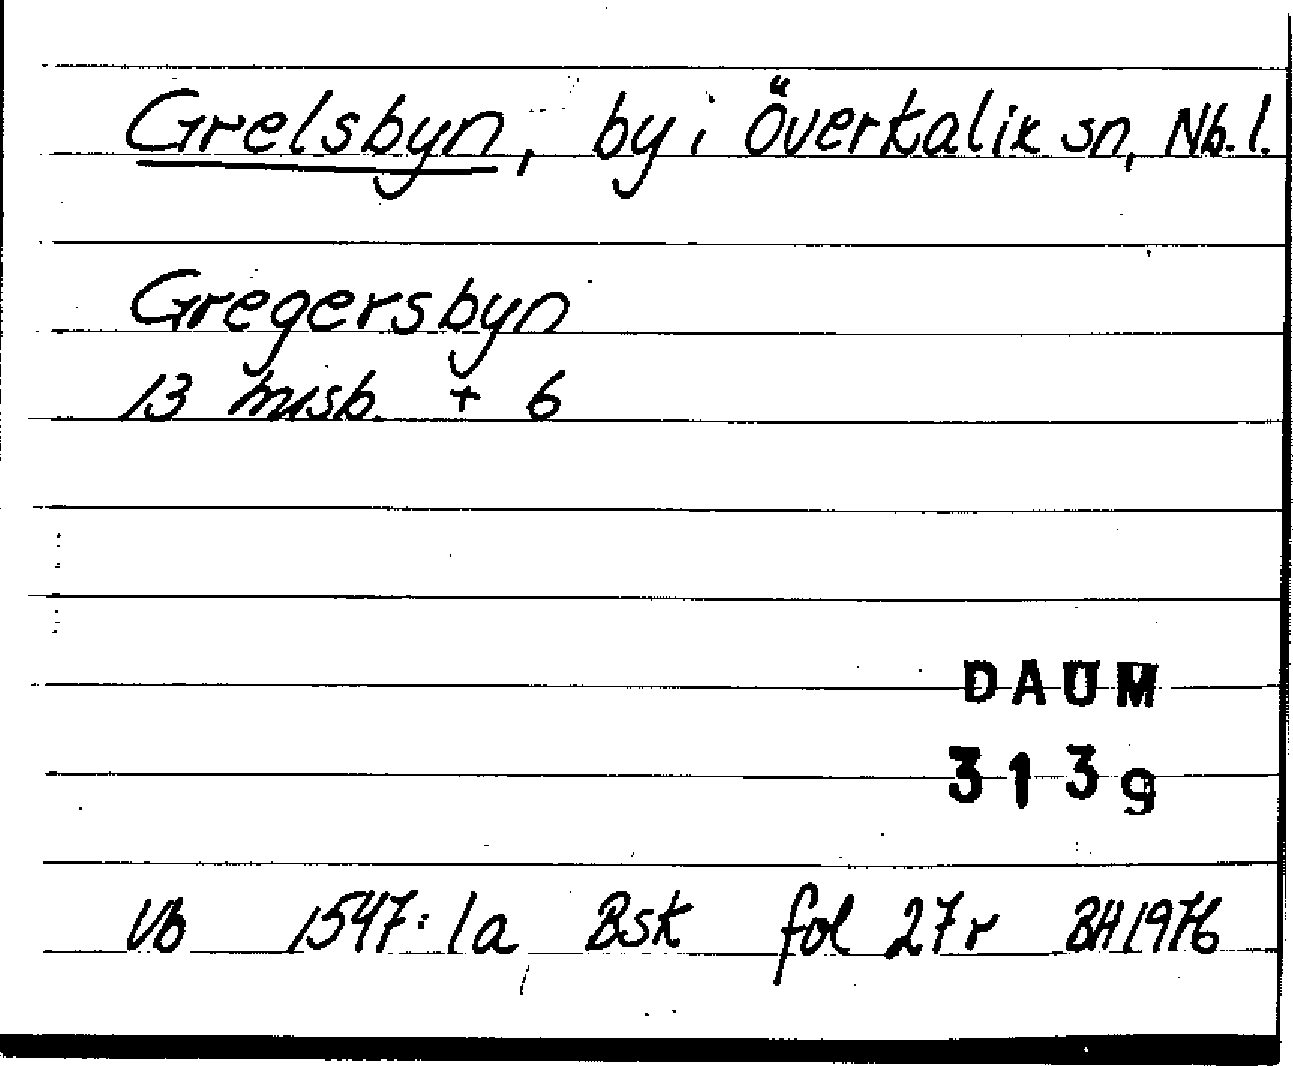 Grelsbyn, by i Överkalix sn, Nb. l.
Gregersbyn
13 + 6
DAUM
3139
Vb 1547:1a Bsk fol 27r BH1976